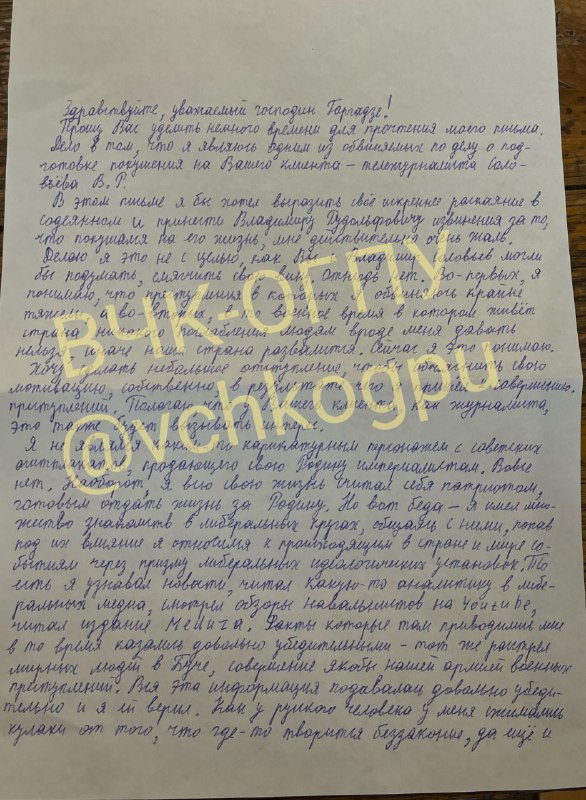 Здравствуйте, уважаемый господин Гаргадзе!
Прошу Вас уделить немного времени для прочтения моего письма.
Дело в том, что я являюсь одним из обвиняемых по делу о под-
готовке покушения на Вашего клиента – тележурналиста Соло-
вьёва В.Р.
В этом письме я бы хотел выразить своё искреннее раскаяние в
содеянном и принести Владимиру Рудольфовичу извинения за то,
что покушался на его жизнь, мне действительно очень жаль.
Делаю я это не с целью, как Вы и Владимир Соловьев могли
бы подумать, смягчить свою вину. Отнюдь нет. Во-первых, я
понимаю, что преступления в которых я обвиняюсь крайне
тяжелы, а во-вторых, в то военное время в котором живёт
страна никакого послабления людям вроде меня давать
нельзя, иначе наша страна развалится. Сейчас я это понимаю.
Хочу сделать небольшое отступление, чтобы объяснить свою
мотивацию, собственно в результате чего я пришёл к совершению
преступлений. Полагаю, что у Вашего клиента, как журналиста,
это также будет вызывать интерес.
Я не являлся каким-то карикатурным персонажем с советских
агитплакатов, продающего свою Родину империалистам. Вовсе
нет. Наоборот, я всю свою жизнь считал себя патриотом,
готовым отдать жизнь за Родину. Но вот беда – я имел мно-
жество знакомств в либеральных кругах, общаясь с ними, попав
под их влияние я относился к происходящим в стране и мире со-
бытиям через призму либеральных идеологических установок. То
есть я узнавал новости, читал какую-то аналитику в либе-
ральных медиа, смотрел обзоры навальнистов на Youtube,
читал издание Медуза. Факты которые там приводились мне
в то время казались довольно убедительными – тот же расстрел
мирных людей в Буче, совершение якобы нашей армией военных
преступлений. Вся эта информация подавалась довольно убеди-
тельно и я ей верил. Как у русского человека у меня сжимались
кулаки от того, что где-то творится беззаконие, да ещё и
ВЧК-ОГПУ
@vchkogpu